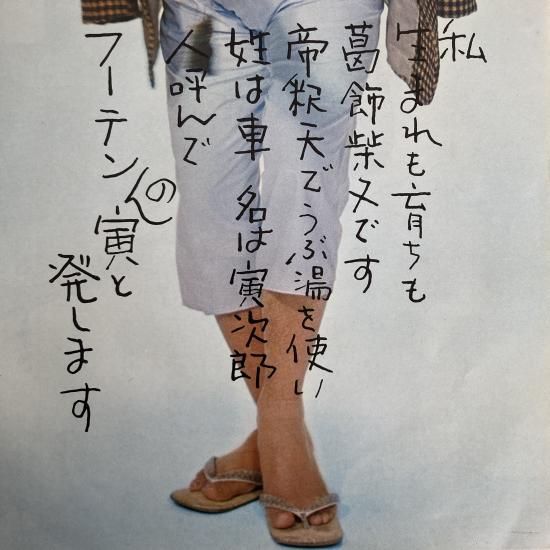 私
生まれも育ちも
葛飾柴又です
帝釈天でうぶ湯を使い
姓は車 名は寅次郎
人呼んで
フーテンの寅と
発します